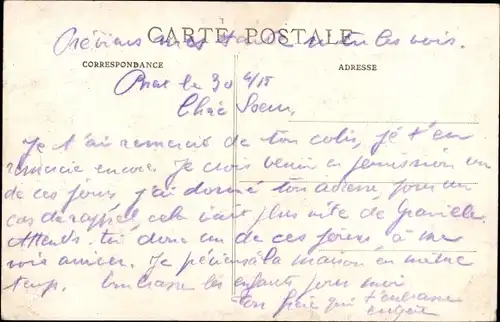 CARTE POSTALE
Préviens mes tante si tu les vois.
CORRESPONDANCE
ADRESSE
le 30 6/15
Chère Soeur,
Je t'ai remercié de ton colis, je t'en
remercie encore. Je dois venir en permission un
de ces jours j'ai donné ton adresse pour un
cas de rappel cela vait plus vite de
Attends-toi donc un de ces jours à me
voir arriver. Je à la maison en même
temp. Embrasse les enfants pour moi
ton frère qui t'embrasse